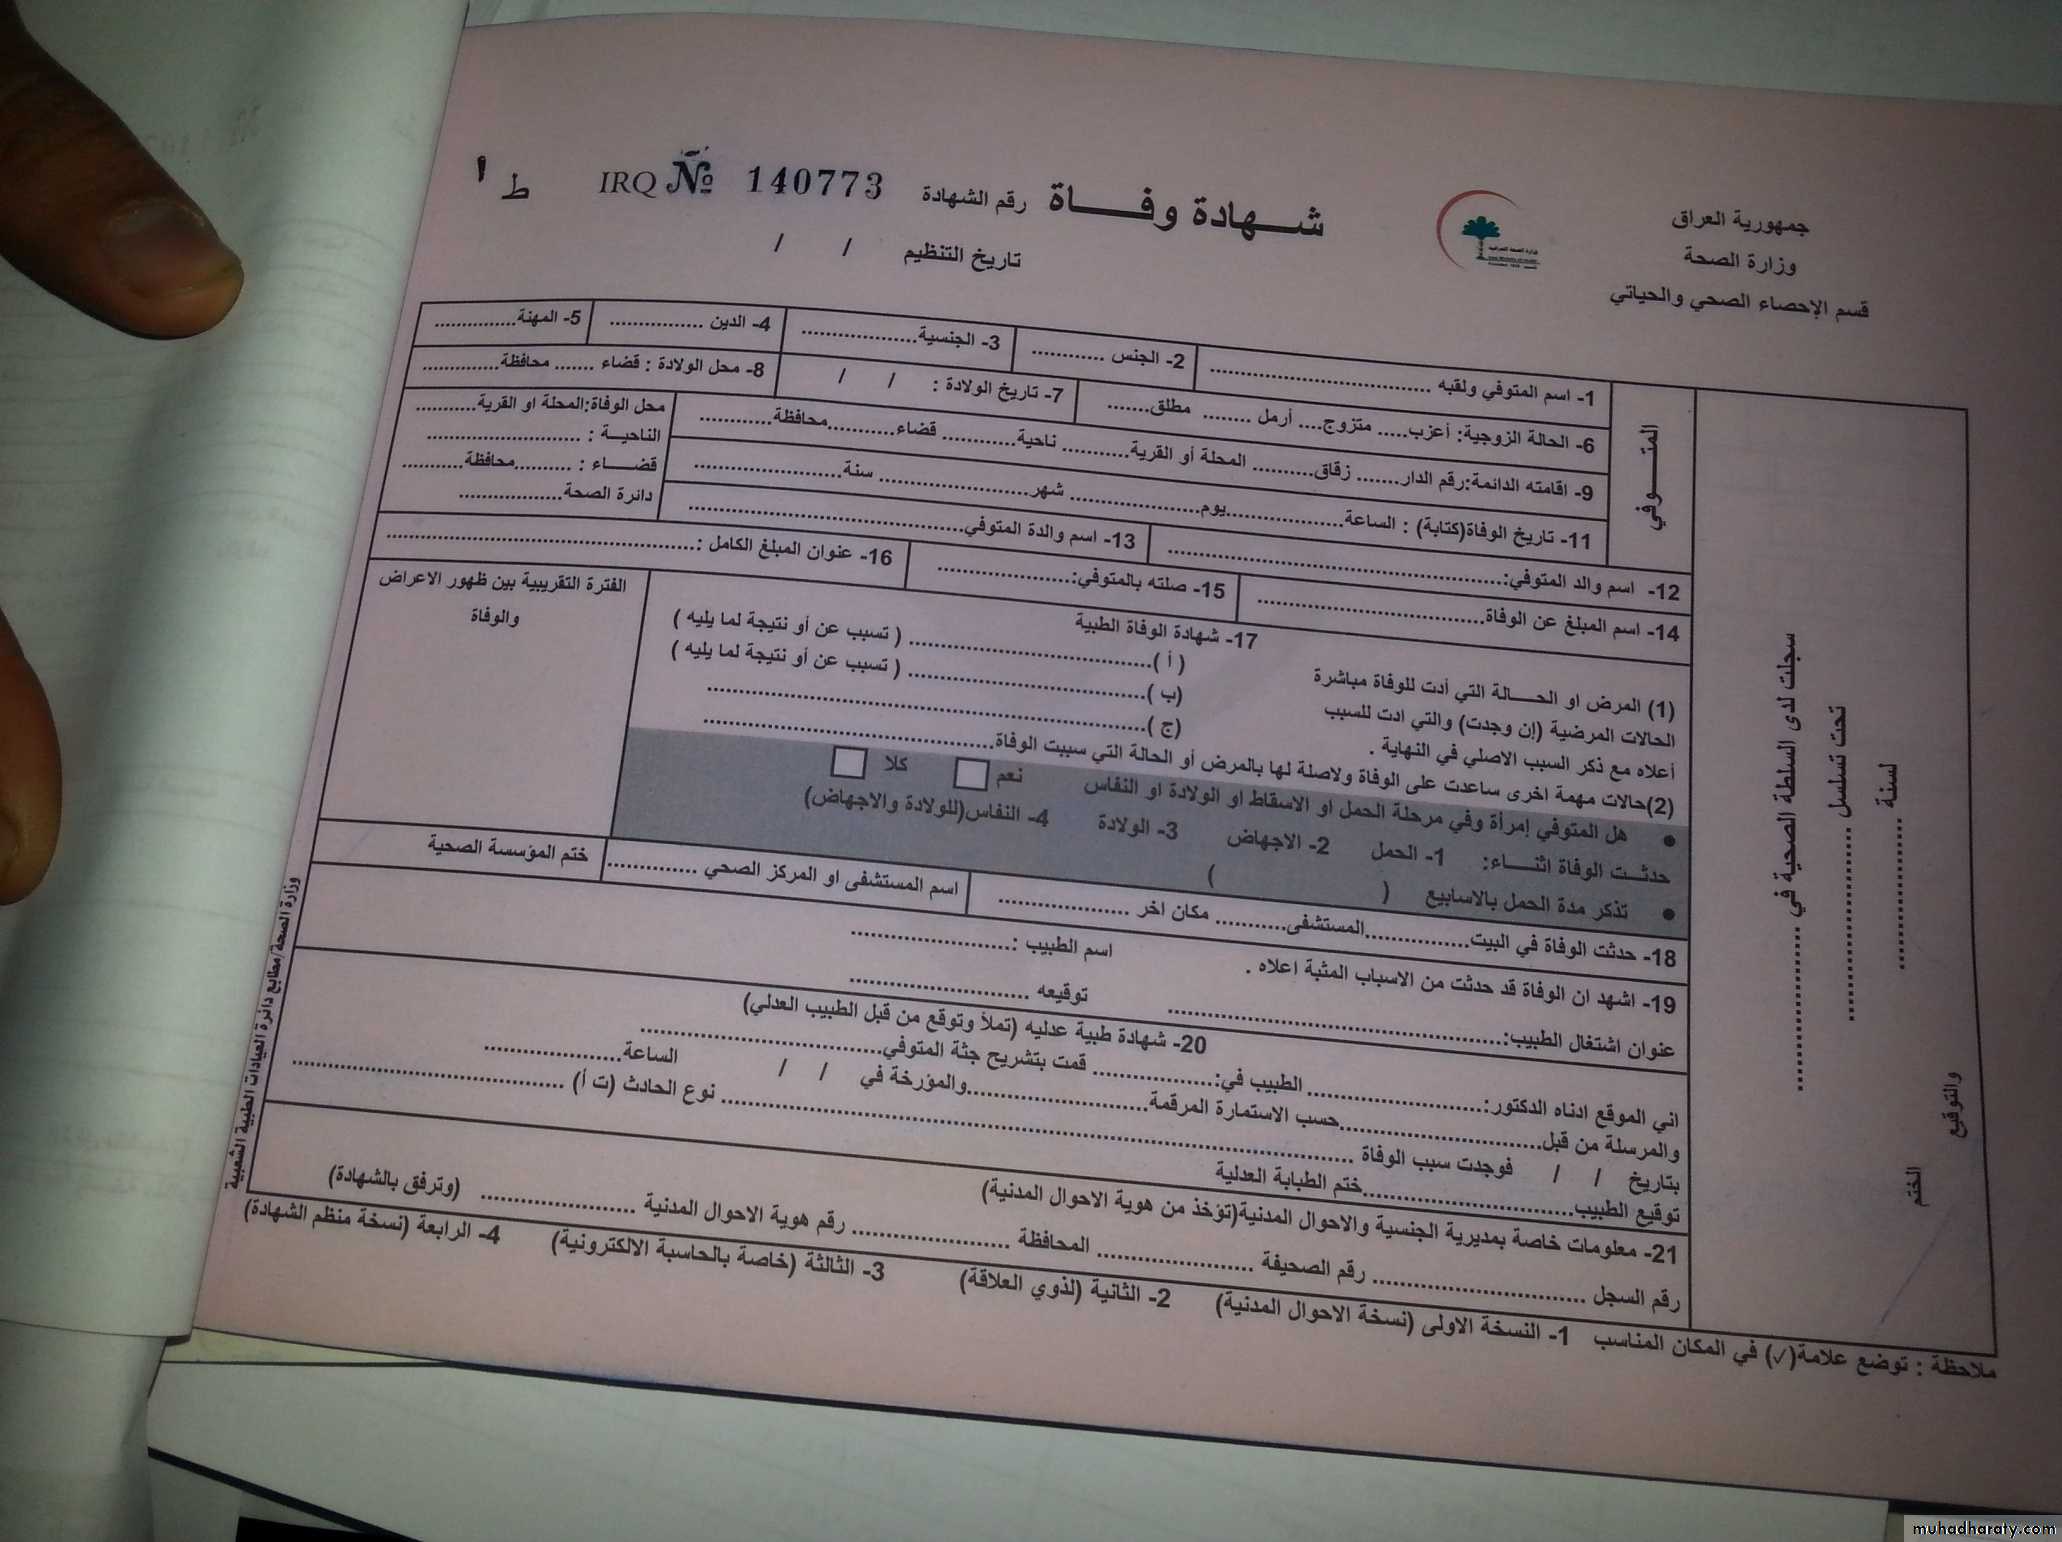 جمهورية العراق
وزارة الصحة
قسم الإحصاء الصحي والحياتي
شهادة وفاة
رقم الشهادة IRQ № 140773
ط ١
تاريخ التنظيم / /
المتوفي
1- اسم المتوفي ولقبه .......... 2- الجنس .......... 3- الجنسية .......... 4- الدين .......... 5- المهنة ..........
6- الحالة الزوجية: أعزب..... متزوج.... أرمل ........ مطلق....... 7- تاريخ الولادة : / / 8- محل الولادة : قضاء ....... محافظة..............
9- اقامته الدائمة:رقم الدار....... زقاق.......... المحلة أو القرية........... ناحية............ قضاء...........محافظة............
محل الوفاة:المحلة او القرية...........
الناحية : ..........................
قضاء : ..........محافظة...........
دائرة الصحة..................
11- تاريخ الوفاة(كتابة) : الساعة....................يوم.................... شهر.................... سنة....................
12- اسم والد المتوفي:.......... 13- اسم والدة المتوفي..........
14- اسم المبلغ عن الوفاة.......... 15- صلته بالمتوفي:.......... 16- عنوان المبلغ الكامل :..........
17- شهادة الوفاة الطبية
الفترة التقريبية بين ظهور الاعراض
والوفاة
(1) المرض او الحالة التي أدت للوفاة مباشرة (أ ).......... ( تسبب عن أو نتيجة لما يليه )
الحالات المرضية (إن وجدت) والتي ادت للسبب (ب ).......... ( تسبب عن أو نتيجة لما يليه )
أعلاه مع ذكر السبب الاصلي في النهاية . (ج )..........
(2)حالات مهمة اخرى ساعدت على الوفاة ولاصلة لها بالمرض أو الحالة التي سببت الوفاة..........
• هل المتوفي إمرأة وفي مرحلة الحمل او الاسقاط او الولادة او النفاس نعم كلا
حدثت الوفاة اثناء: 1- الحمل 2- الاجهاض 3- الولادة 4- النفاس(للولادة والاجهاض)
• تذكر مدة الحمل بالاسابيع ( )
18- حدثت الوفاة في البيت..........المستشفى.......... مكان اخر .......... اسم المستشفى او المركز الصحي .......... ختم المؤسسة الصحية
19- اشهد ان الوفاة قد حدثت من الاسباب المثبة اعلاه . اسم الطبيب :..........
عنوان اشتغال الطبيب:.......... توقيعه ..........
20- شهادة طبية عدليه (تملأ وتوقع من قبل الطبيب العدلي)
اني الموقع ادناه الدكتور:.......... الطبيب في:.......... قمت بتشريح جثة المتوفي..........
والمرسلة من قبل..........حسب الاستمارة المرقمة..........والمؤرخة في / / الساعة..........
بتاريخ / / فوجدت سبب الوفاة .......... نوع الحادث (ت أ) ..........
توقيع الطبيب..........ختم الطبابة العدلية
21- معلومات خاصة بمديرية الجنسية والاحوال المدنية(تؤخذ من هوية الاحوال المدنية)
رقم السجل .......... رقم الصحيفة .......... المحافظة .......... رقم هوية الاحوال المدنية .......... (وترفق بالشهادة)
ملاحظة : توضع علامة(✓) في المكان المناسب 1- النسخة الاولى (نسخة الاحوال المدنية) 2- الثانية (لذوي العلاقة) 3- الثالثة (خاصة بالحاسبة الالكترونية) 4- الرابعة (نسخة منظم الشهادة)
سجلت لدى السلطة الصحية في ..........
تحت تسلسل ..........
لسنة ..........
الختم
والتوقيع
وزارة الصحة/مطابع دائرة العيادات الطبية الشعبية
muhadharaty.com